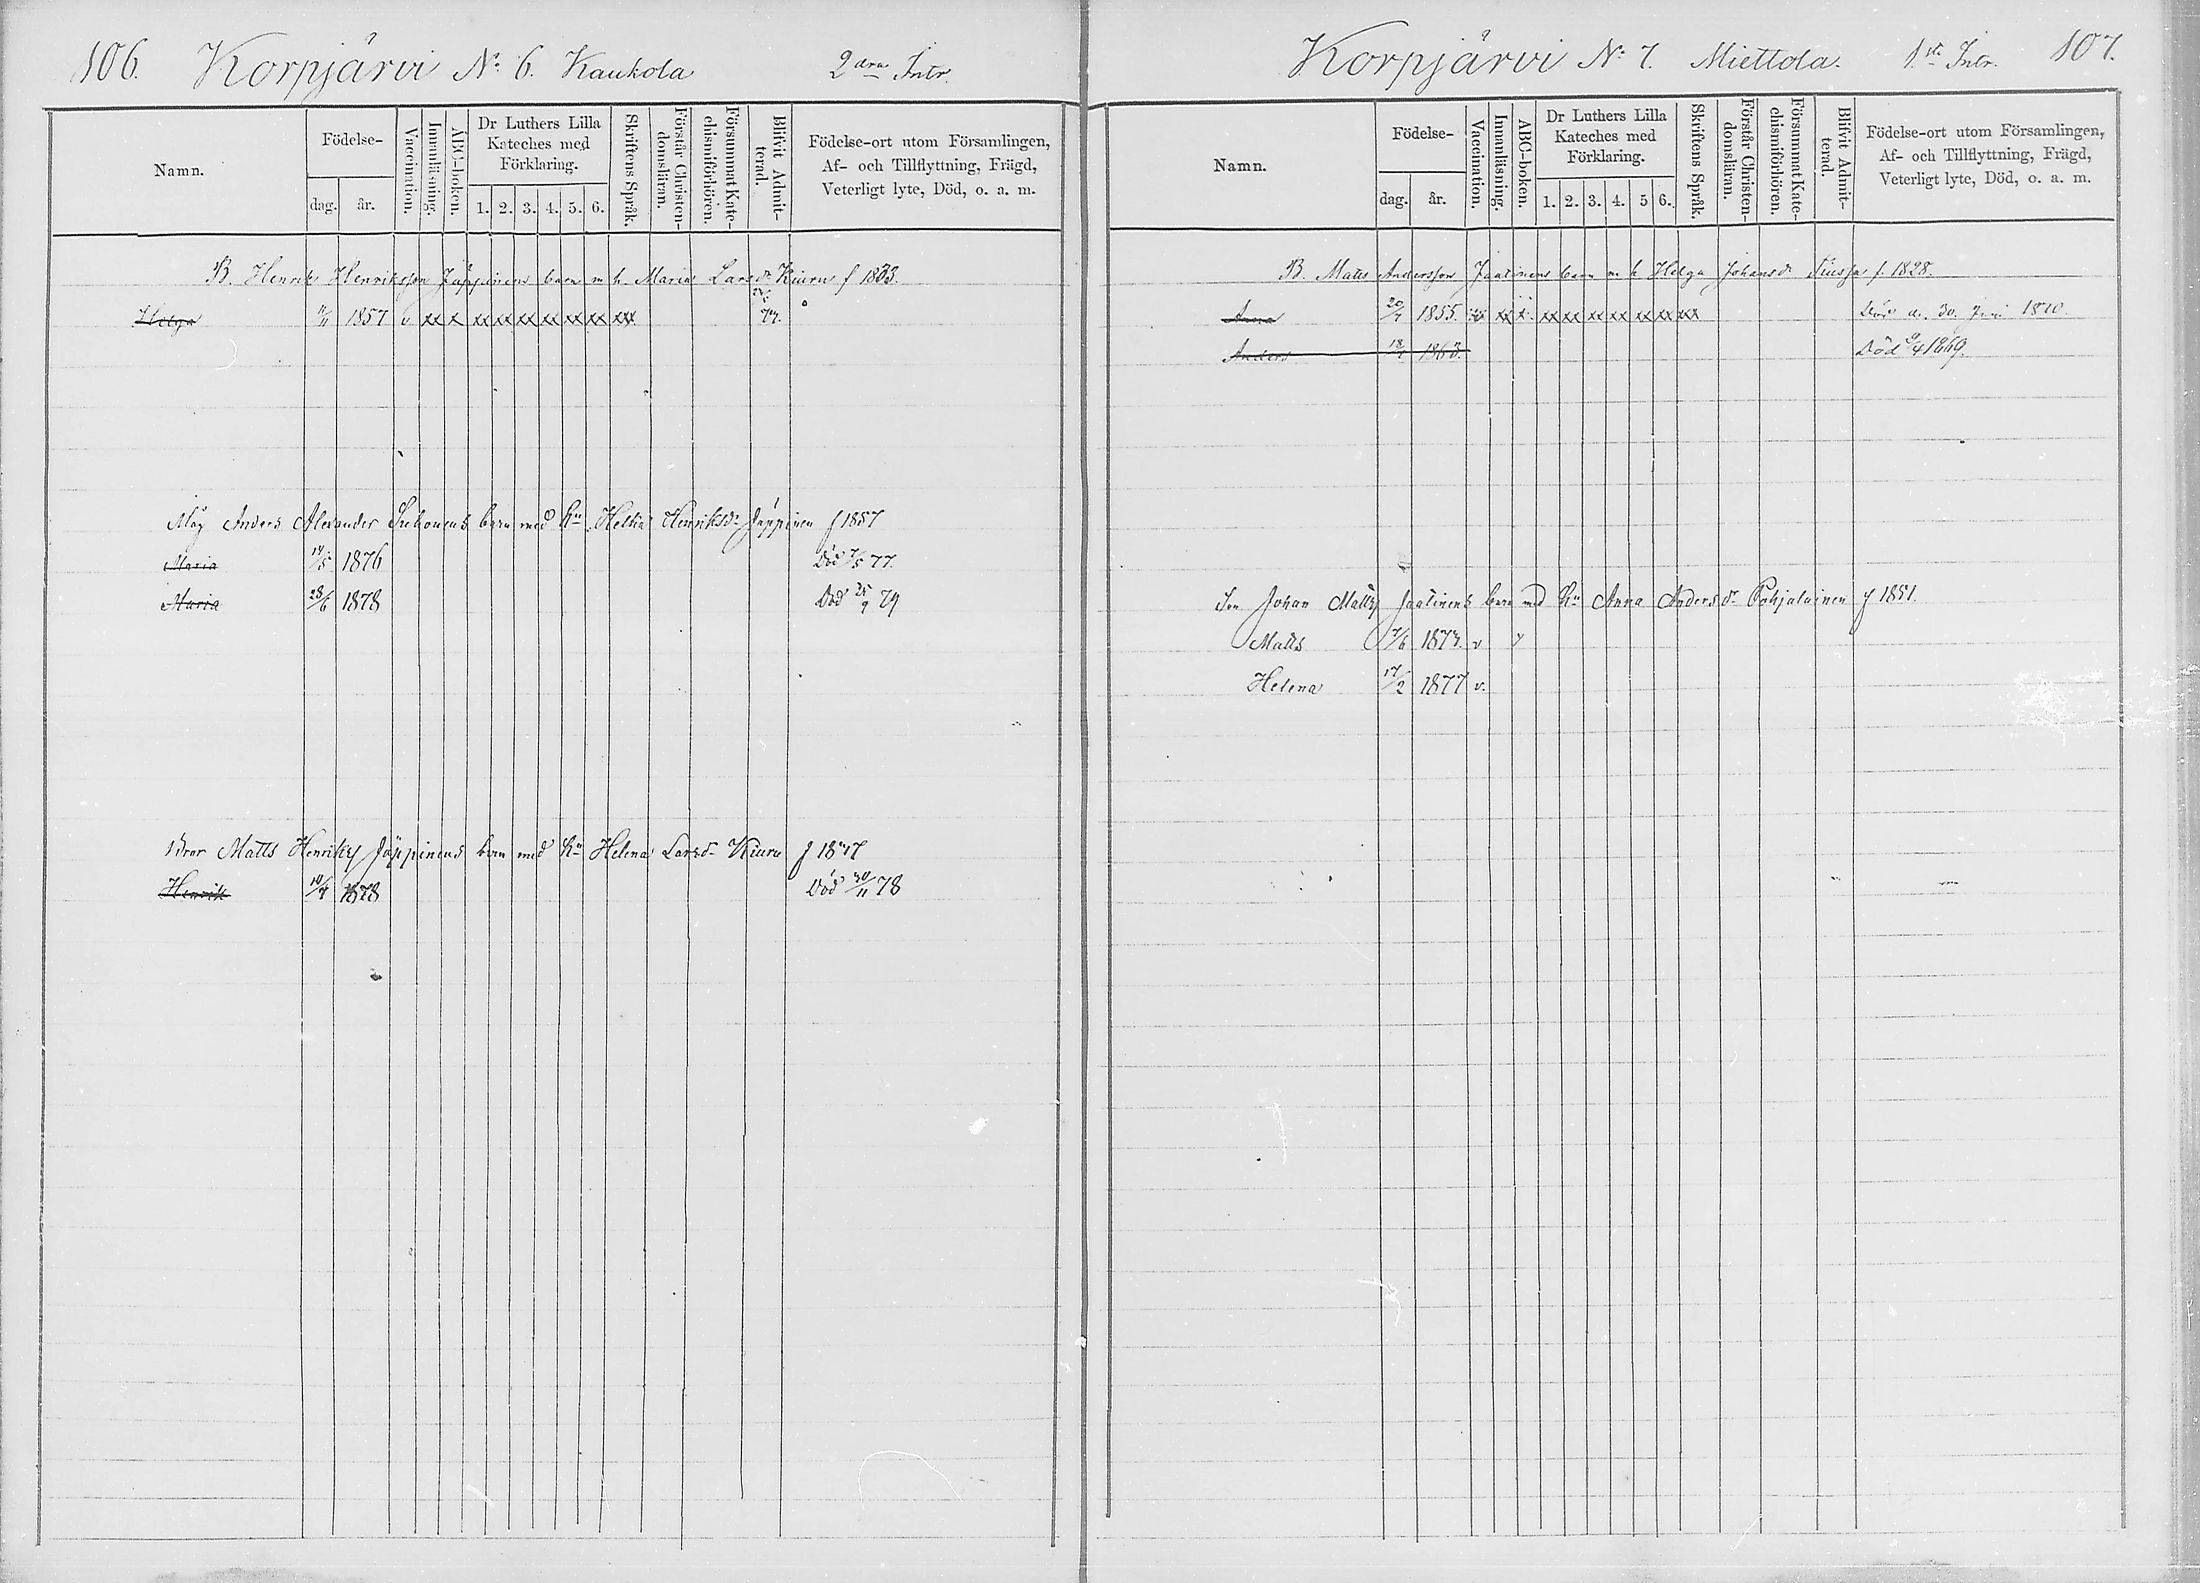 106. Korpjärvi No 6. Kaukola 2dra Intr.
Namn.
Födelse-
dag. år.
Vaccination.
Innanläsning.
ABC-boken.
Dr Luthers Lilla Kateches med Förklaring.
1. 2. 3. 4. 5. 6.
Skriftens Språk.
Förstår Christendomsläran.
Försummat Katechismiförhören.
Blifvit Admitterad.
Födelse-ort utom Församlingen,
Af- och Tillflyttning, Frägd,
Veterligt lyte, Död, o. a. m.
B. Henrik Henriksson Jäppinens barn m h. Maria Larsdr Kiuru f 1833.
Helga 1857 v xx x xx xx xx xx xx xx xxx 77.
Måg Anders Alexander Suhonens barn med hu Helka Henriksdr Jäppinen f 1857
Maria 14/5 1876 Död 7/5 77.
Maria 28/6 1878 Död 25/9 79
Bror Matts Henriks Jäppinens barn med hu Helena Larsdr Kiuru f 1847
Henrik 10/4 1878 Död 30/11 78
Korpjärvi No 7. Miettola. 1sta Intr. 107.
Namn.
Födelse-
dag. år.
Vaccination.
Innanläsning.
ABC-boken.
Dr Luthers Lilla Kateches med Förklaring.
1. 2. 3. 4. 5 6.
Skriftens Språk.
Förstår Christendomsläran.
Försummat Katechismiförhören.
Blifvit Admitterad.
Födelse-ort utom Församlingen,
Af- och Tillflyttning, Frägd,
Veterligt lyte, Död, o. a. m.
B. Matts Andersson Jaatinens barn m h Helga Johansdr Tiussa f. 1828.
Anna 1855. v xx x xx xx xx xx xx xx xx Död d. 30 Juni 1870.
Anders 1863. Död 9/4 1869.
Son Johan Matts Jaatinens barn med hu Anna Andersdr Pohjalainen f 1851.
Matts 7/6 1874. v v
Helena 17/2 1877 v.